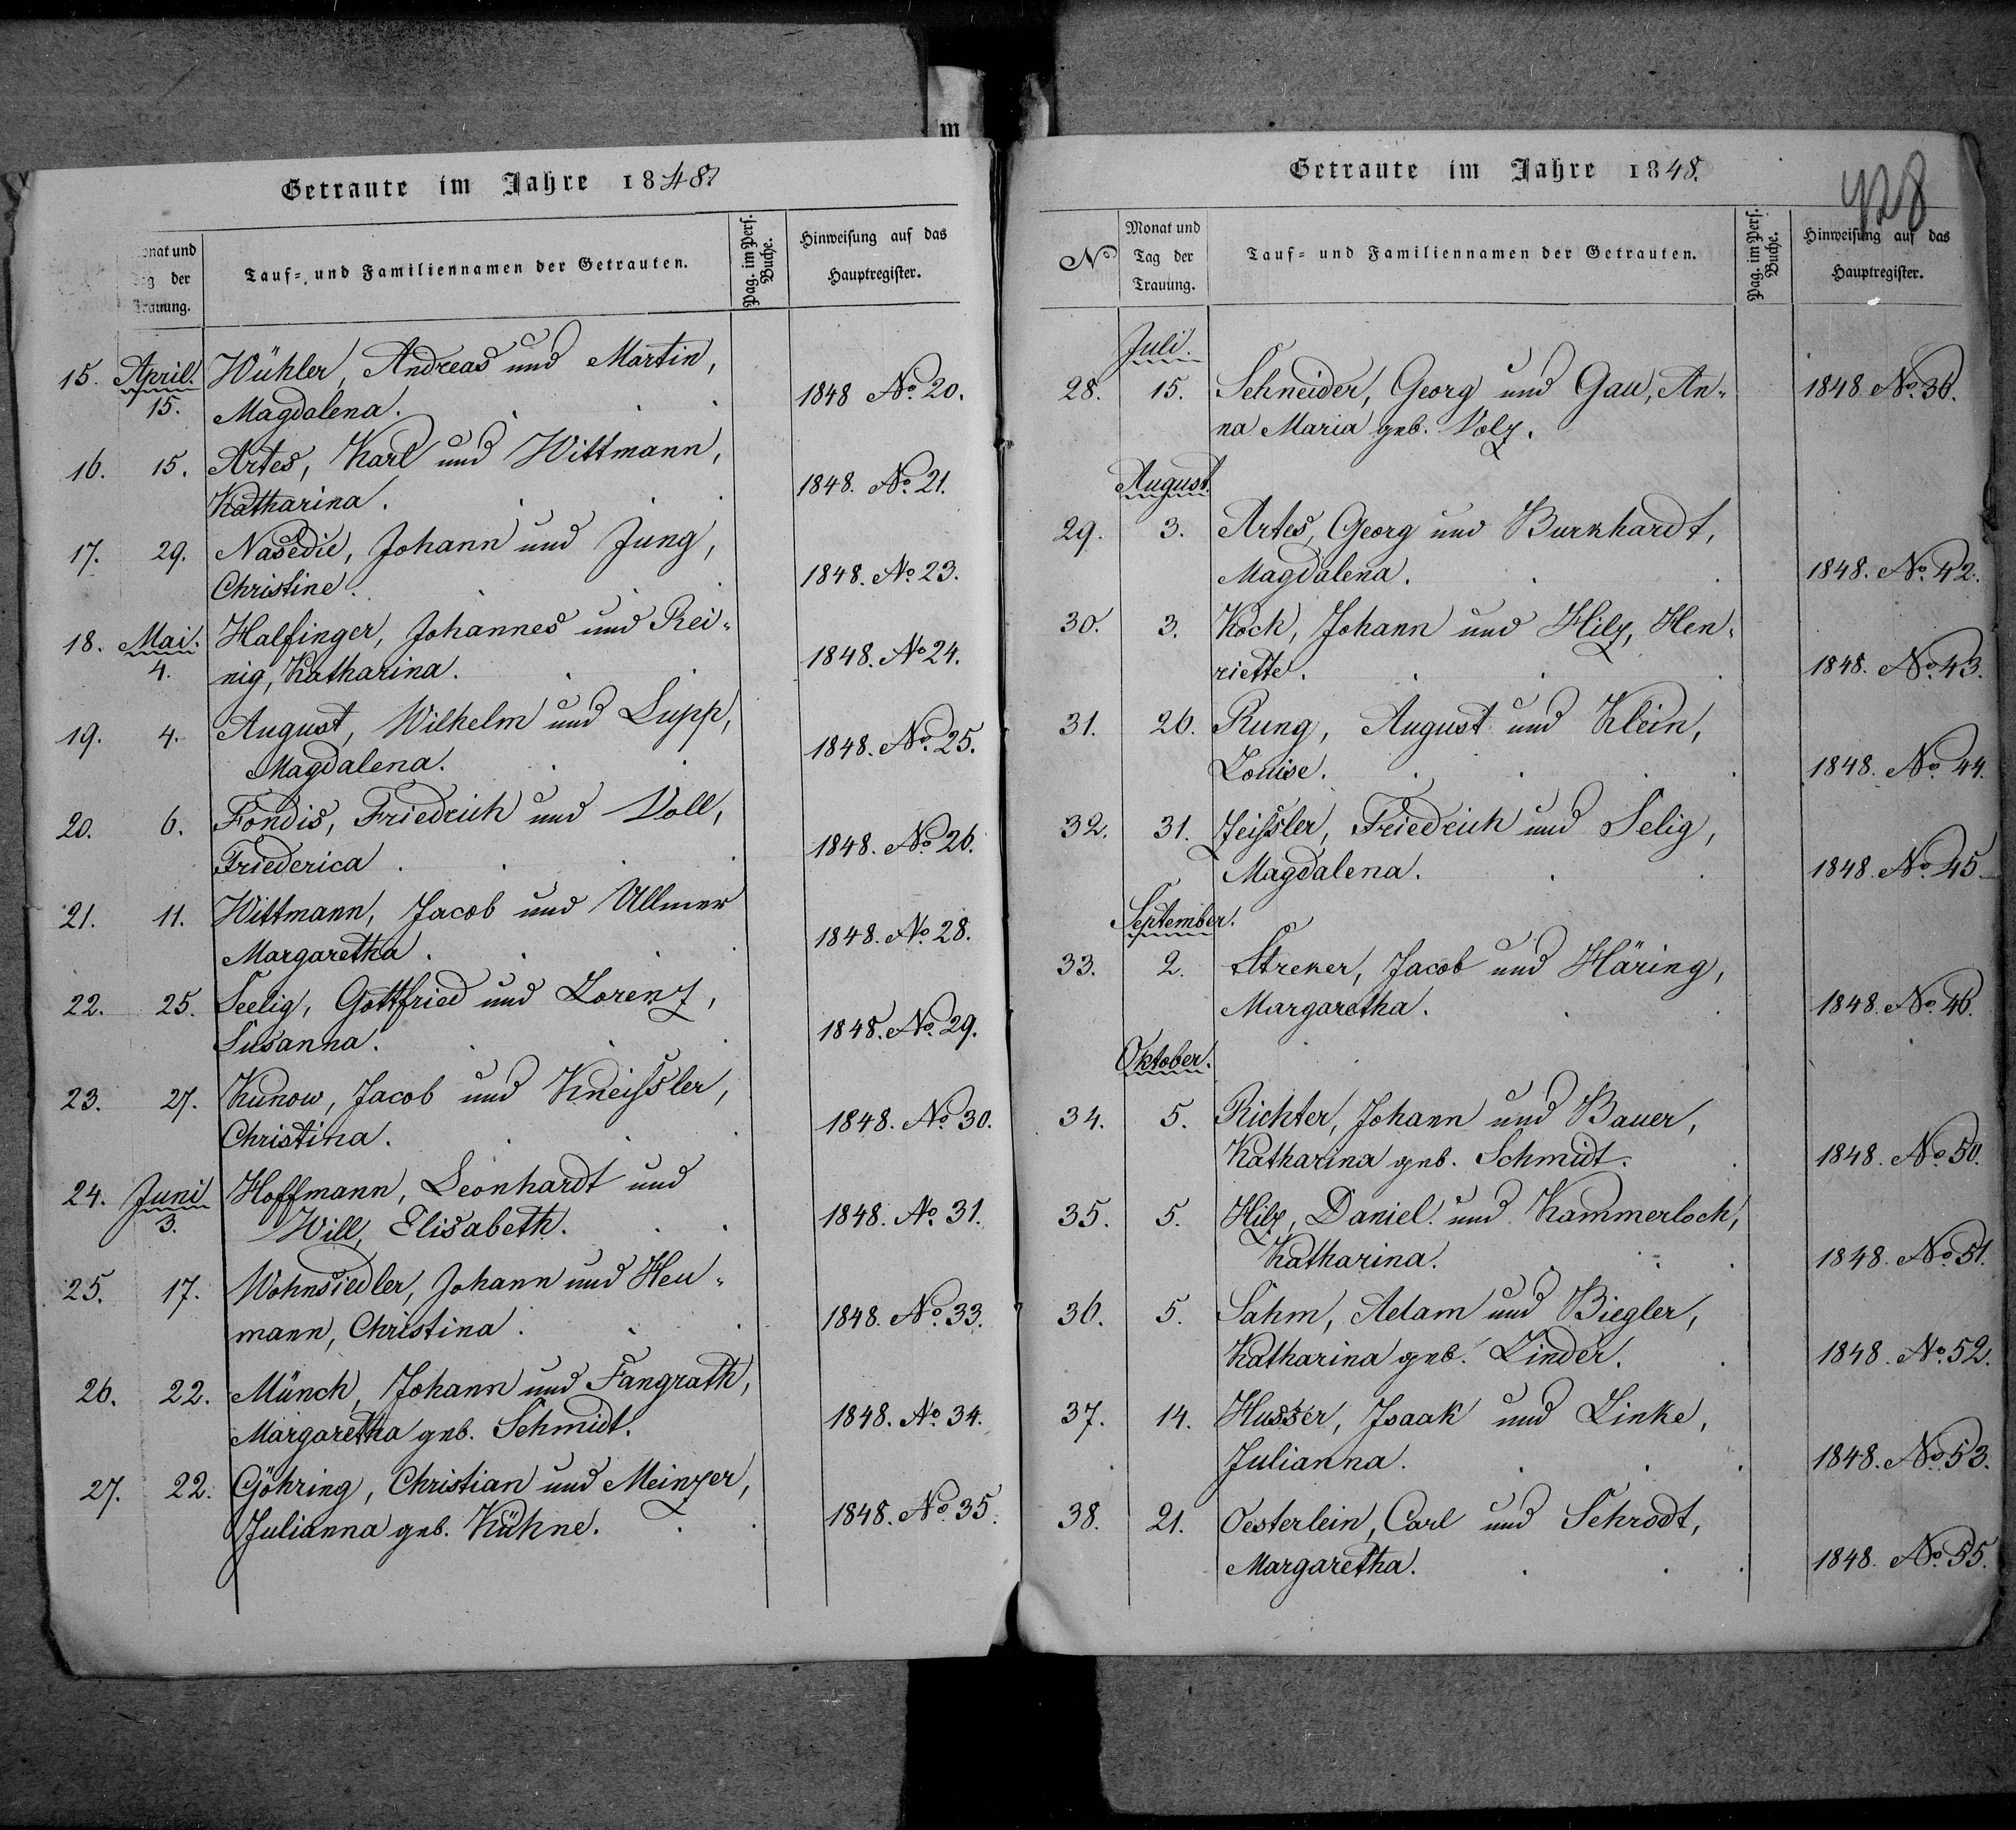 m
Getraute im Jahre 1848
onat und
Tag der
Trauung.
Tauf-, und Familiennamen der Getrauten.
Pag. im Pers. Buche.
Hinweisung auf das
Hauptregister.
15. April. Wühler, Andreas und Martin,
15. Magdalena. 1848 No. 20.
16. 15. Artes, Karl und Wittmann,
Katharina. 1848. No. 21.
17. 29. Nasedie, Johann und Jung,
Christine. 1848. No. 23.
18. Mai. Halfinger, Johannes und Rei-
4. nig, Katharina. 1848. No. 24.
19. 4. August, Wilhelm und Lupp,
Magdalena. 1848. No. 25.
20. 6. Fondis, Friedrich und Voll,
Friederica. 1848. No. 26.
21. 11. Wittmann, Jacob und Ullmer
Margaretha. 1848. No. 28.
22. 25. Seelig, Gottfried und Lorenz,
Susanna. 1848. No. 29.
23. 27. Kunow, Jacob und Kneißler,
Christina. 1848. No. 30.
24. Juni Hoffmann, Leonhardt und
3. Will, Elisabeth. 1848. No. 31.
25. 17. Wohnsiedler, Johann und Heu-
mann, Christina. 1848. No. 33.
26. 22. Münch, Johann und Fangrath,
Margaretha geb. Schmidt. 1848. No. 34.
27. 22. Göhring, Christian und Meinzer,
Julianna geb. Kühne. 1848. No. 35.
Getraute im Jahre 1848.
428
No
Monat und
Tag der
Trauung.
Tauf- und Familiennamen der Getrauten.
Pag. im Pers. Buche.
Hinweisung auf das
Hauptregister.
Juli.
28. 15. Schneider, Georg und Gau, An- 1848 No. 36.
na Maria geb. Volz.
August.
29. 3. Artes, Georg und Burkhardt,
Magdalena. 1848. No. 42.
30. 3. Koch, Johann und Hilz, Hen-
riette. 1848. No. 43.
31. 26. Rung, August und Klein,
Louise. 1848. No. 44.
32. 31. Zeißler, Friedrich und Selig,
Magdalena. 1848. No. 45.
September.
33. 2. Streker, Jacob und Häring,
Margaretha. 1848. No. 46.
Oktober.
34. 5. Richter, Johann und Bauer,
Katharina geb. Schmidt. 1848. No. 50.
35. 5. Hilz, Daniel und Kammerloch,
Katharina. 1848. No. 51.
36. 5. Sahm, Adam und Biegler,
Katharina geb. Linder. 1848. No. 52.
37. 14. Husser, Isaak und Linke,
Julianna. 1848. No. 53.
38. 21. Oesterlein, Carl und Schrodt,
Margaretha. 1848. No. 55.